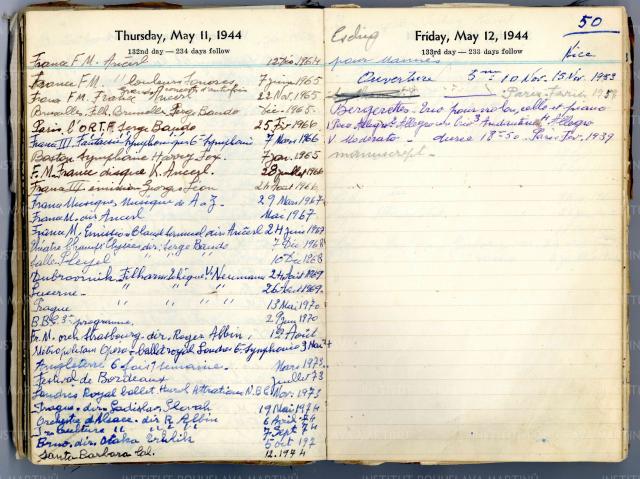 Thursday, May 11, 1944
132nd day — 234 days follow
France F.M. Ančerl 1964
France F.M. "Couleurs Sonores" 7 juin 1965
Trans F.M. France Ančerl 22 Nov. 1965
Bruxelles, Filh. Bruxelles Serge Baudo Dec. 1965.
Paris l'O.R.T.F. Serge Baudo 25 Fév 1966
France III. Fantaisie Symphonique 6e Symphonie 7 Mars 1966
Boston Symphonie Harvey Fox. 7 Jan. 1965
F.M. France disque K. Ančerl. 28 juillet 1966
France IV emission Georges Léon 24 Août 1966
France Musique, Musique de A a Z. 29 Mars 1967
France M. dir Ančerl Mai 1967
France M. Emission Claude dir. Ančerl 24 juin 1967
Théâtre Champs Elysées dir. Serge Baudo 7 Dec 1968
Salle Pleyel " " 10 Dec 1968
Dubrovnik. Filharm. Tchèque V. Neumann 24 Août 1969
Lucerne - " " " 26 Août 1969.
Prague " " " 13 Mai 1970
B.B.C. 3e programme. 29 1970
Fr. M. orch Strasbourg. dir. Roger Albin, 1er Août
Metropolitan Opera - ballet royal Londres 6e Symphonie 3 Mai 74
Angleterre 6 fois semaine. Mars 1973
Festival de Bordeaux Juillet 73
Londres Royal ballet. N.B.C. Nov. 1973
Prague. dir. Ladislav Slovák 19 Mai 1974
Orchestre d'Alsace. dir R. Albin 6 Avril 74
Fr. Culture " " " 7 Sept 74
Brno, dir. Otaka Trhlik 5 Oct 197
Santa Barbara Cal. 12. 1974
50
Friday, May 12, 1944
133rd day — 233 days follow
pour Nice
Ouverture 5 mn 10 Nov. 15 Nov. 1953
Paris
Bergerettes - Trio pour violon, cello et piano
I Poco Allegro 2 Allegro con brio 3 Andantino 4 Allegro
V Moderato - durée 18'50 Paris Fév. 1939
manuscript -
INSTITUT BOHUSLAVA MARTINŮ